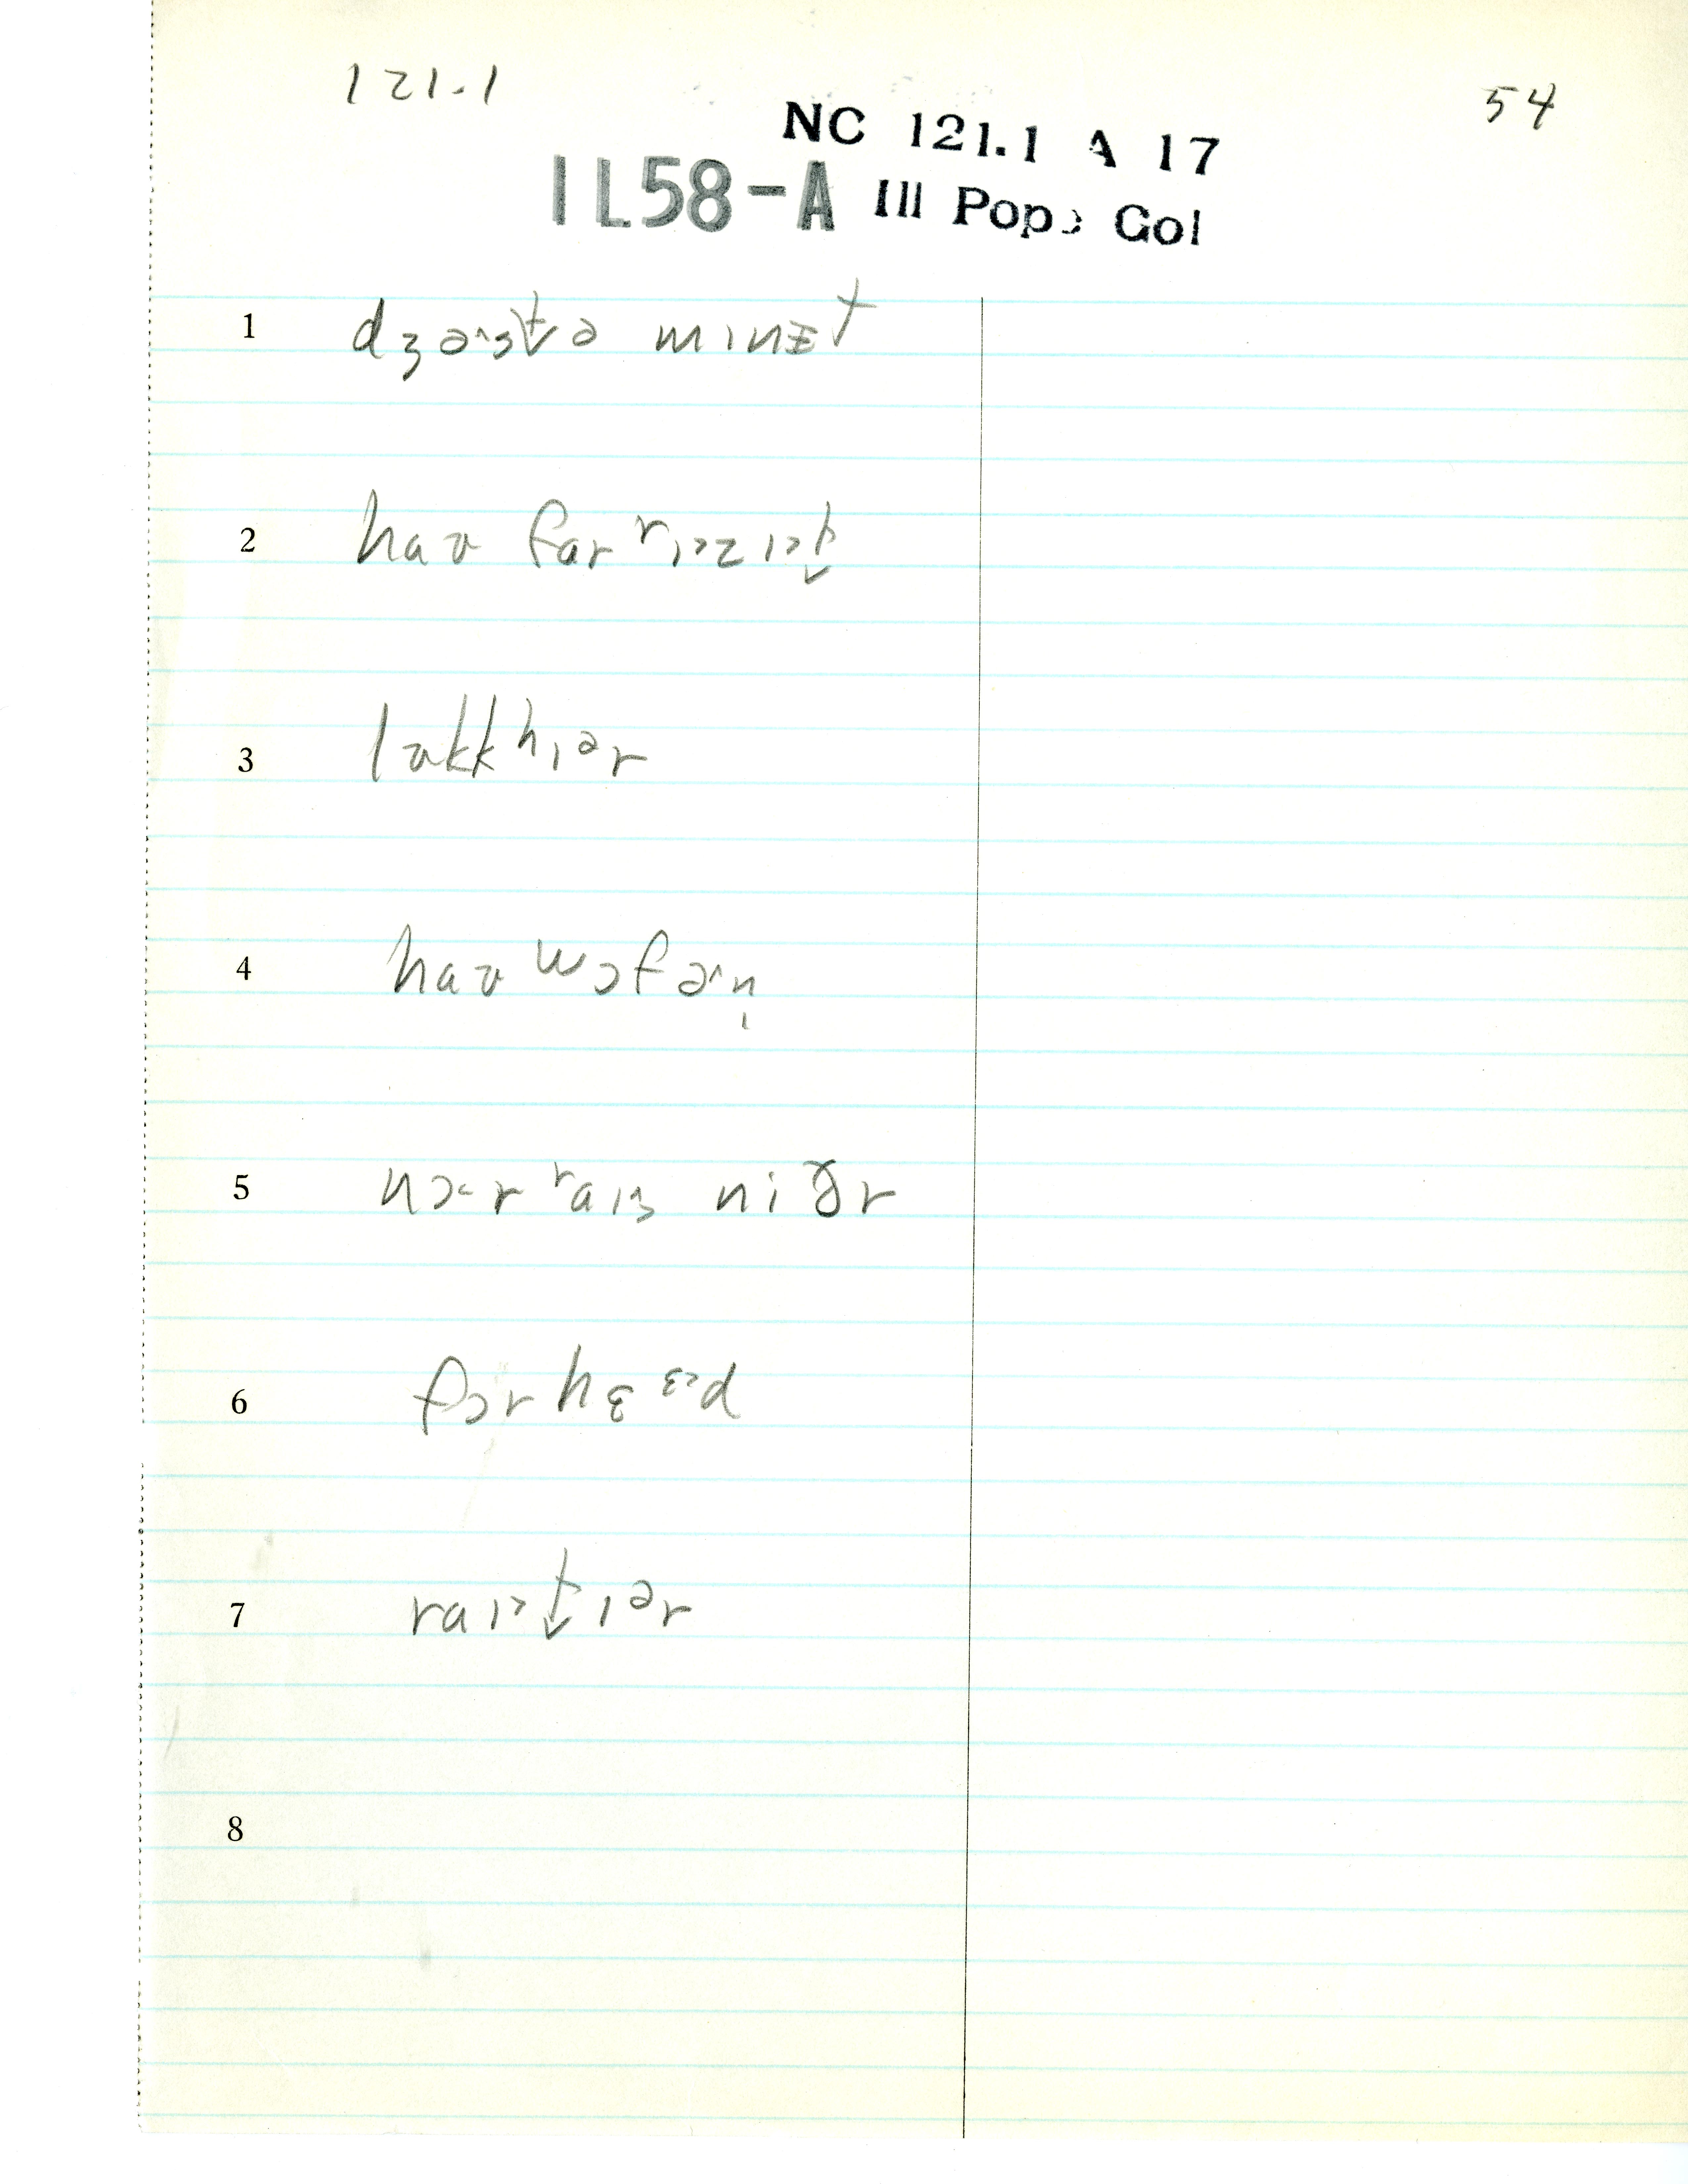 121.1
54
NC 121.1 A 17
IL58-A Ill Pop. Gol
1 dʒə˄st̬ə minɪt
2 haʊ far rɪ˃z ɪ˃t̬
3 lʊkk hɪər
4 haʊ wɔfə˄n̩
5 nɔ˂r raɪ˃ niðr
6 fɔrhɛ ɛ˃d
7 raɪ˃t̬ ɪər
8